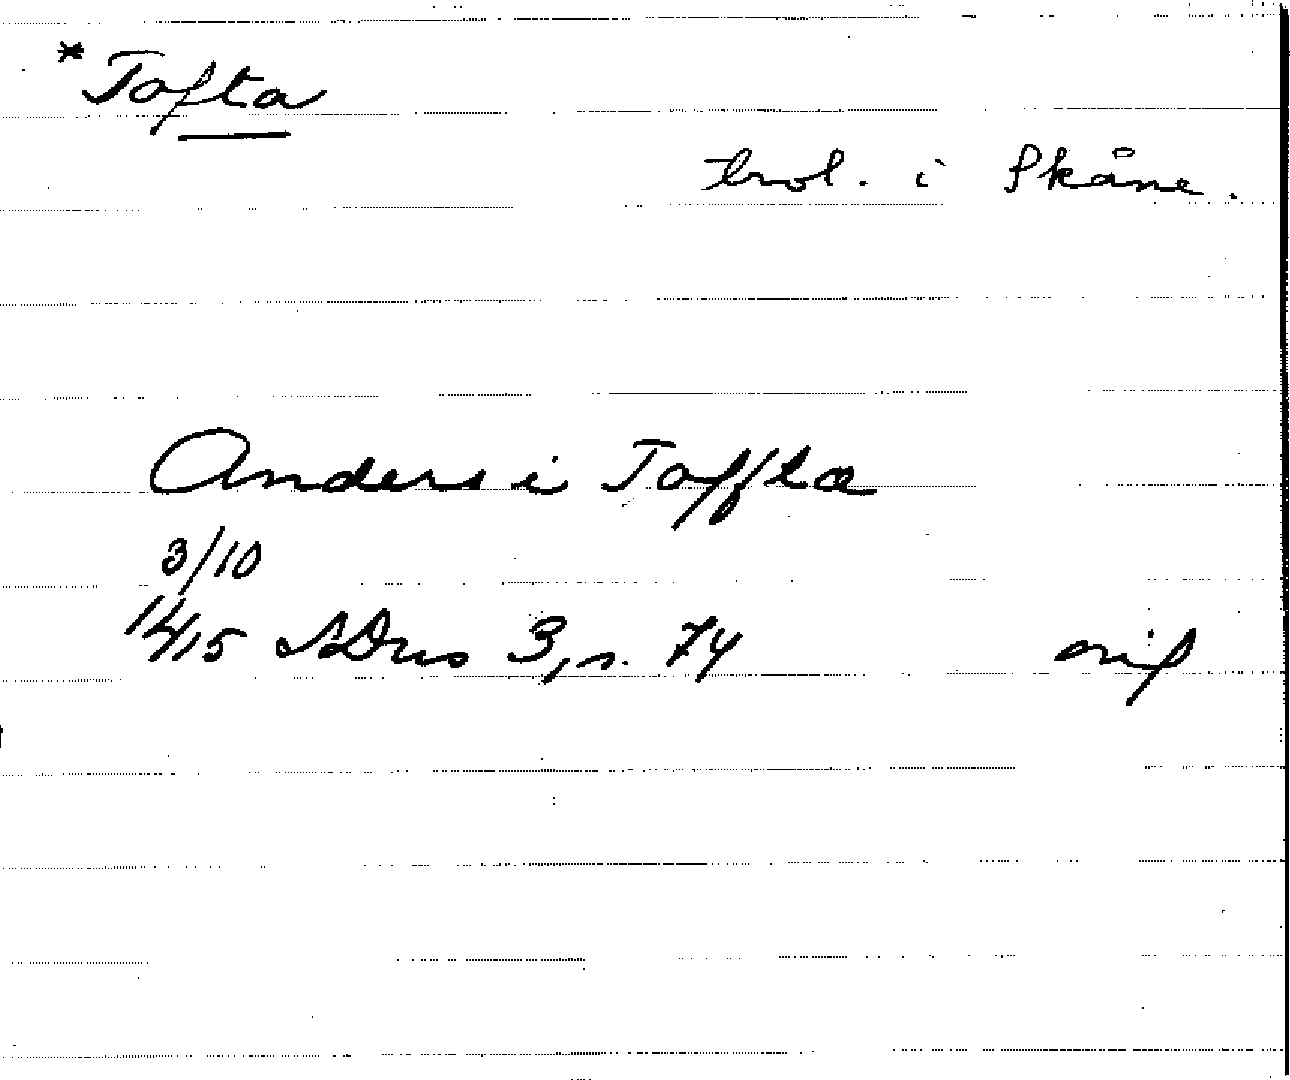 *Tofta
trol. i Skåne.
Anders i Toffta
3/10
1415 SDns 3, s. 74 orig